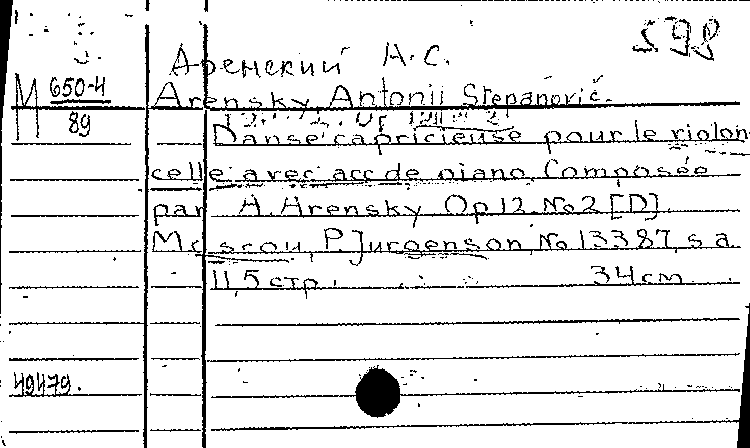 598
Аренский А.С.
М 650-4
Arensky, Antonii Stepanovič.
89
Danse capricieuse pour le violon-
celle avec acc de piano. Composée
par A. Arensky Op 12. No 2 [D].
Moscou, P. Jurgenson, No 13387, s a
11, 5 стр. 34 см.
49479.